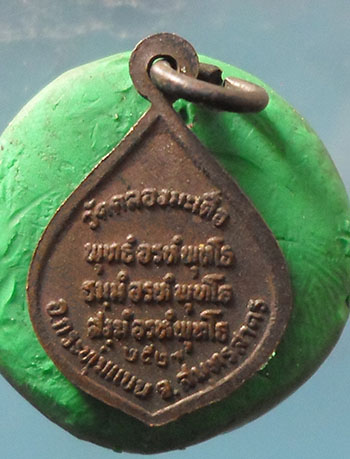 วัดคลองมะเดื่อ
พุทธํอรหํพุทโธ
ธมฺมํอรหํพุทโธ
สงฺฆํอรหํพุทโธ
๒๕๒๗
อ.กระทุ่มแบน จ.สมุทรสาคร